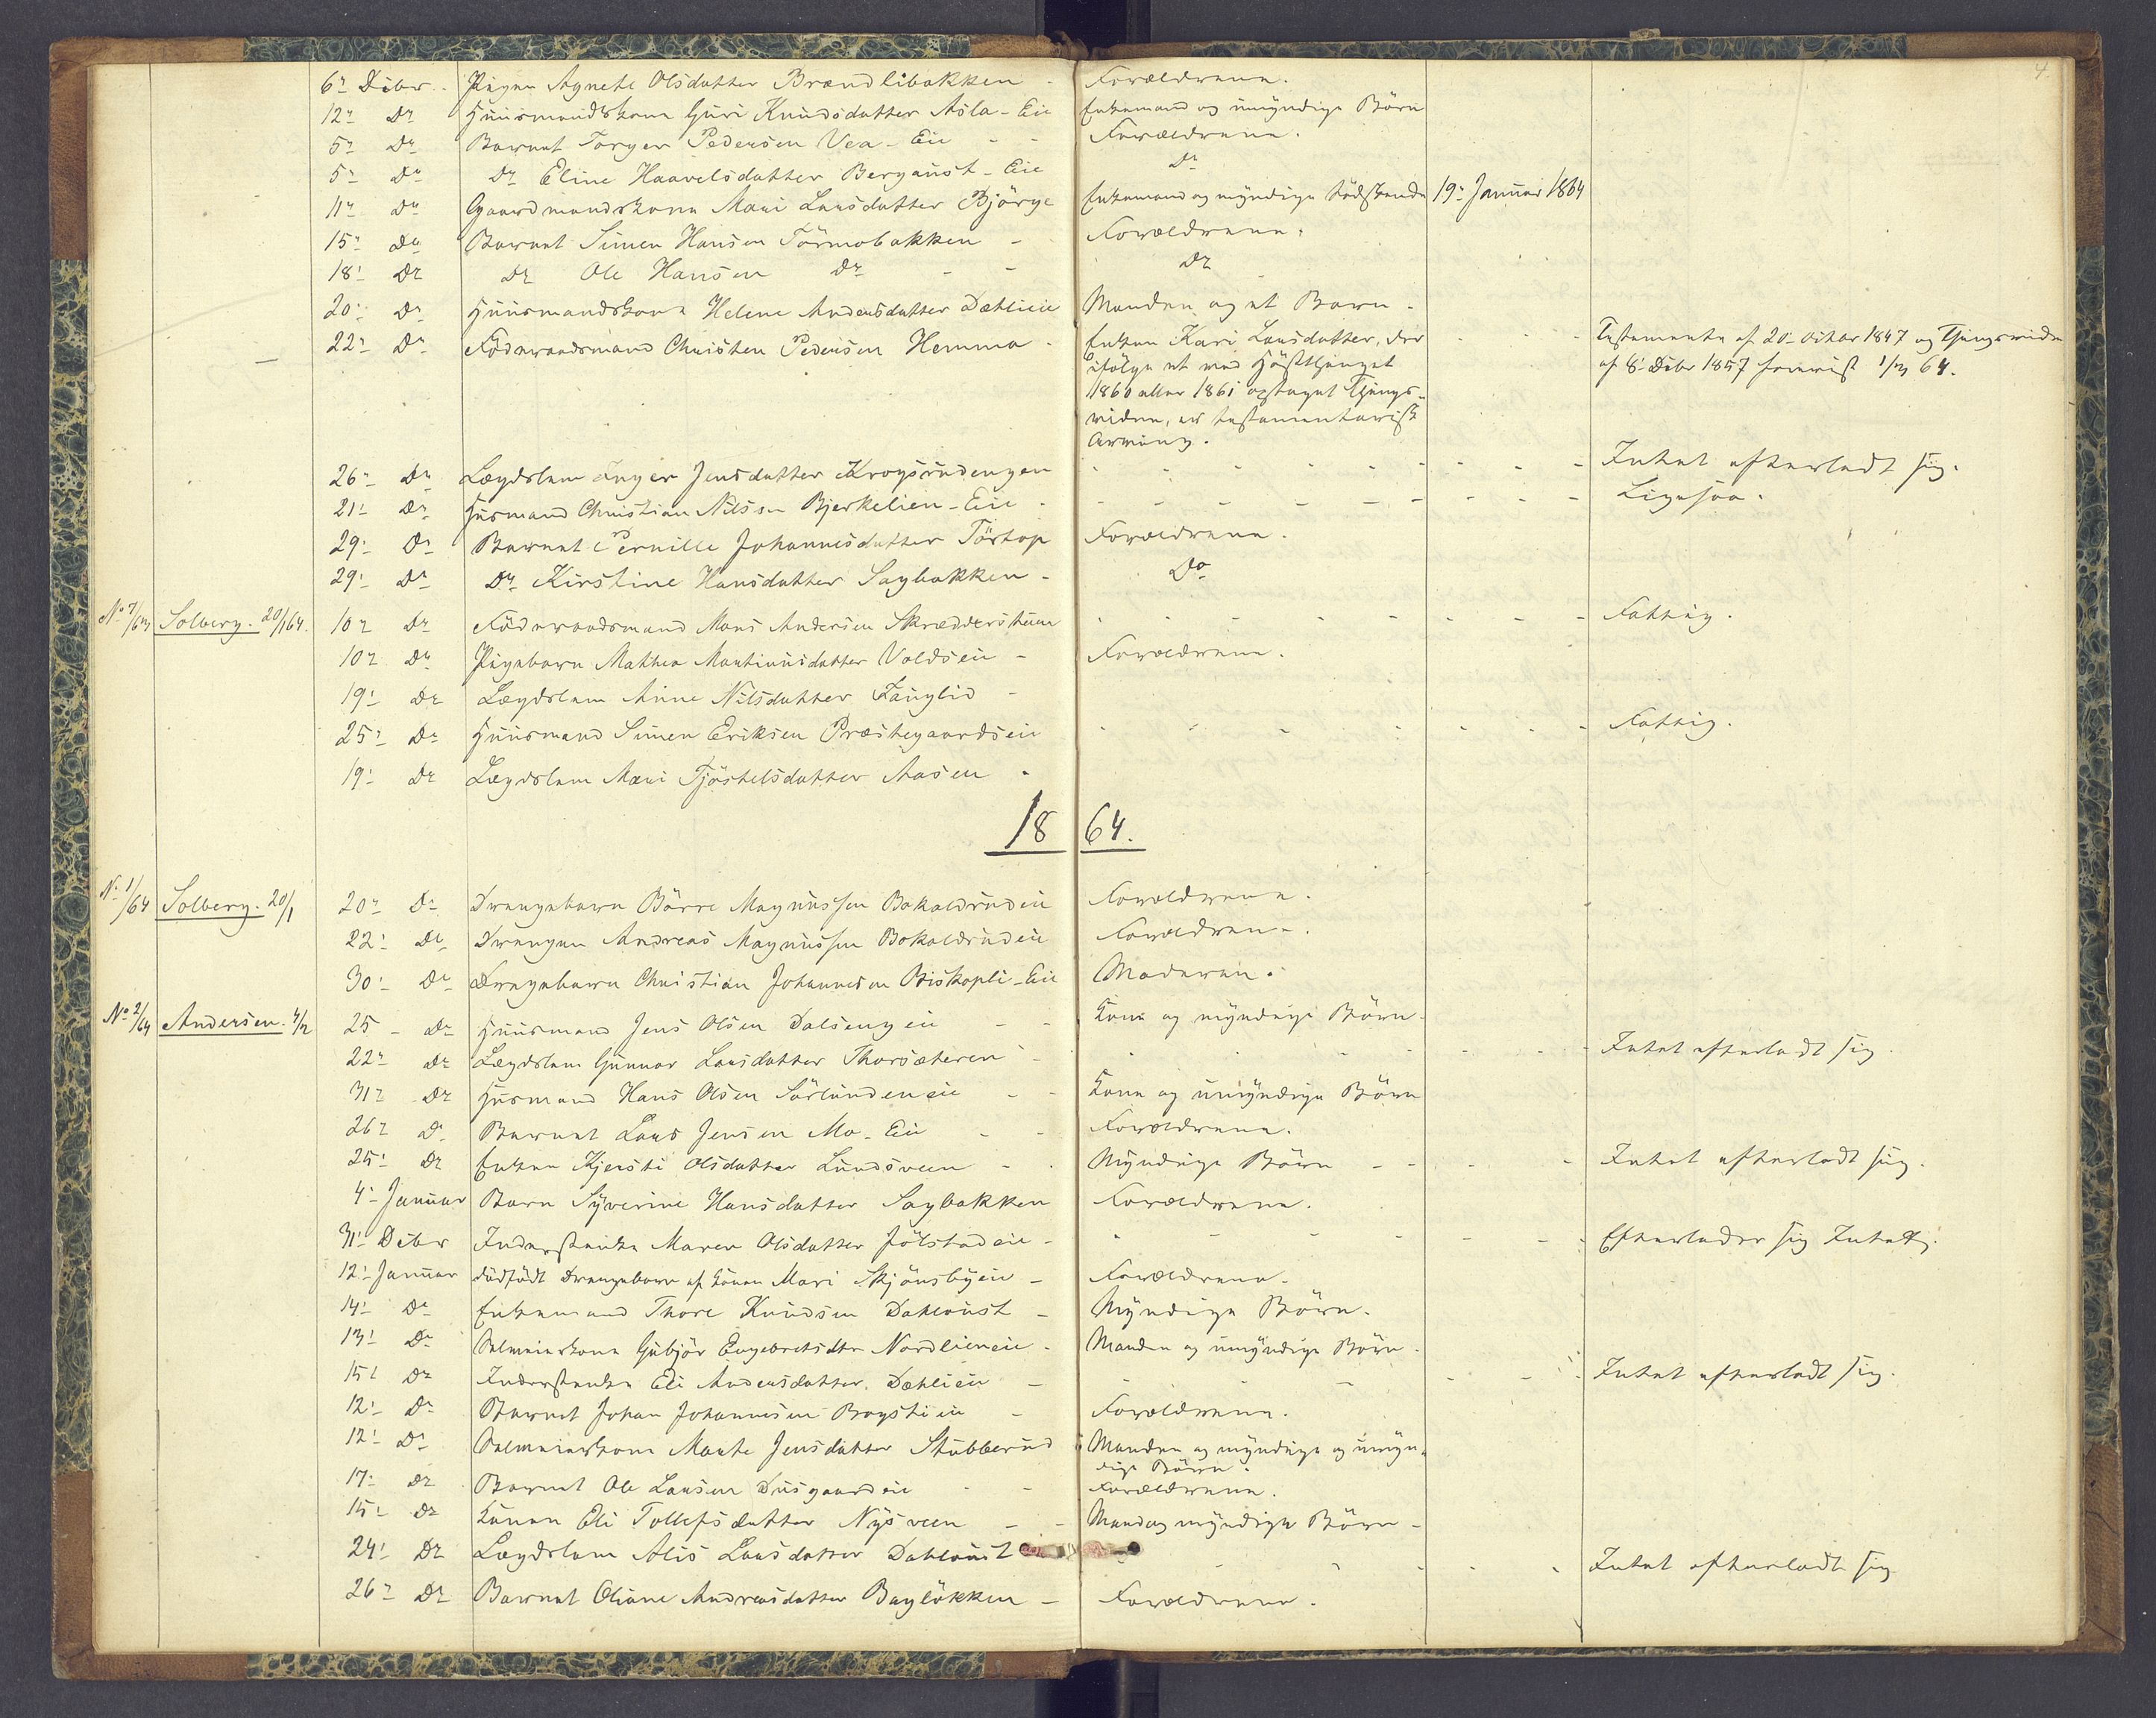 4
6- Debr. Pigen Agnete Olsdatter Brændlibakken - Forældrene.
12- Do Huusmandskone Guri Knudsdatter Asla-Eie Enkemand og umyndige Børn
5- Do Barnet Torger Pedersen Vea-Eie - - Forældrene.
5- Do Do Eline Haavelsdatter Bergaust-Eie Do
11- Do Gaardmandskone Mari Larsdatter Björge Enkemand og myndige Sødskende 19- Januar 1864
15- Do Barnet Simen Hansen Törmobakken - Forældrene.
18- Do Do Ole Hansen Do - - Do
20- Do Huusmandskone Helene Andersdatter Dæhlieie Manden og et Barn.
22- Do Föderaadsmand Christen Pedersen Hemma - Enken Kari Larsdatter, der - - Testamente af 20- Octbr 1847 og Thingsvidne
ifölge et ved Hösttthinget af 8- Debr 1857 forevist 1/3 64.
1860 eller 1861 optaget Things-
vidne, er testamentarisk
Arving.
26- Do Lægdslem Inger Jensdatter Krogsrudengen - - - Intet efterladt sig.
21- Do Husmand Christian Nilssen Bjerkelien-Eie - - - Ligesaa.
29- Do Barnet Pernille Johannesdatter Törtop Forældrene.
29- Do Do Kirstine Hansdatter Sagbakken - Do
No 7/63 Solberg. 20/1 64. 10- Do Föderaadsmand Mons Andersen Skrædderstuen - - - Fattig.
10- Do Pigebarn Mathea Martinusdatter Voldseie - Forældrene.
19- Do Lægdslem Anne Nilsdatter Fanglid -
25- Do Huusmand Simen Eriksen Præstegaardseie - - - Fattig.
19- Do Lægdslem Mari Tjöstelsdatter Aasen -
1864.
No 1/64 Solberg. 20/1 20- Do Drengebarn Börre Magnussen Bakaldrudeie Forældrene.
22- Do Drengen Andreas Magnussen Bokaldrudeie Forældren-.
30- Do Drengebarn Christian Johannesen Biskopli-Eie Moderen.
No 2/64 Andersen. 4/2 25- Do Huusmand Jens Olsen Dalsengeie - - Kone og myndige Børn.
22- Do Lægdslem Gunnor Larsdatter Thorsæteren - - - Intet efterladt sig.
31- Do Husmand Hans Olsen Sörlundeneie - - Kone og umyndige Børn
26- Do Barnet Lars Jensen Mo-Eie - - Forældrene.
25- Do Enken Kjersti Olsdatter Lundsveen - - Myndige Børn - - - Intet efterladt sig.
4- Januar Barn Syverine Hansdatter Sagbakken Forældrene.
31- Debr Inderstenke Maren Olsdatter Jölstadeie - - - Efterlader sig Intet.
12- Januar dödfödt Drengebarn af Konen Mari Skjönsbyeie - Forældrene.
14- Do Enkemand Thore Knudsen Dahloust - Myndige Børn.
13- Do Selveierkone Gubjör Engebretsdtr Nordlieneie - Manden og umyndige Børn.
15- Do Inderstenke Eli Andersdatter Dæhlieie - - - Intet efterladt sig.
12- Do Barnet Johan Johannesen Brystieie - Forældrene.
12- Do Selveierkone Marte Jensdatter Stubberud Manden og myndige og umyn-
dige Børn.
17- Do Barnet Ole Larsen Diisgaardeie - - Forældrene.
15- Do Konen Eli Tollefsdatter Nysveen - - Mand og myndige Børn -
24- Do Lægdslem Alis Larsdatter Dahloust - - - Intet efterladt sig
26- Do Barnet Oliane Andreasdatter Baglökken - Forældrene.